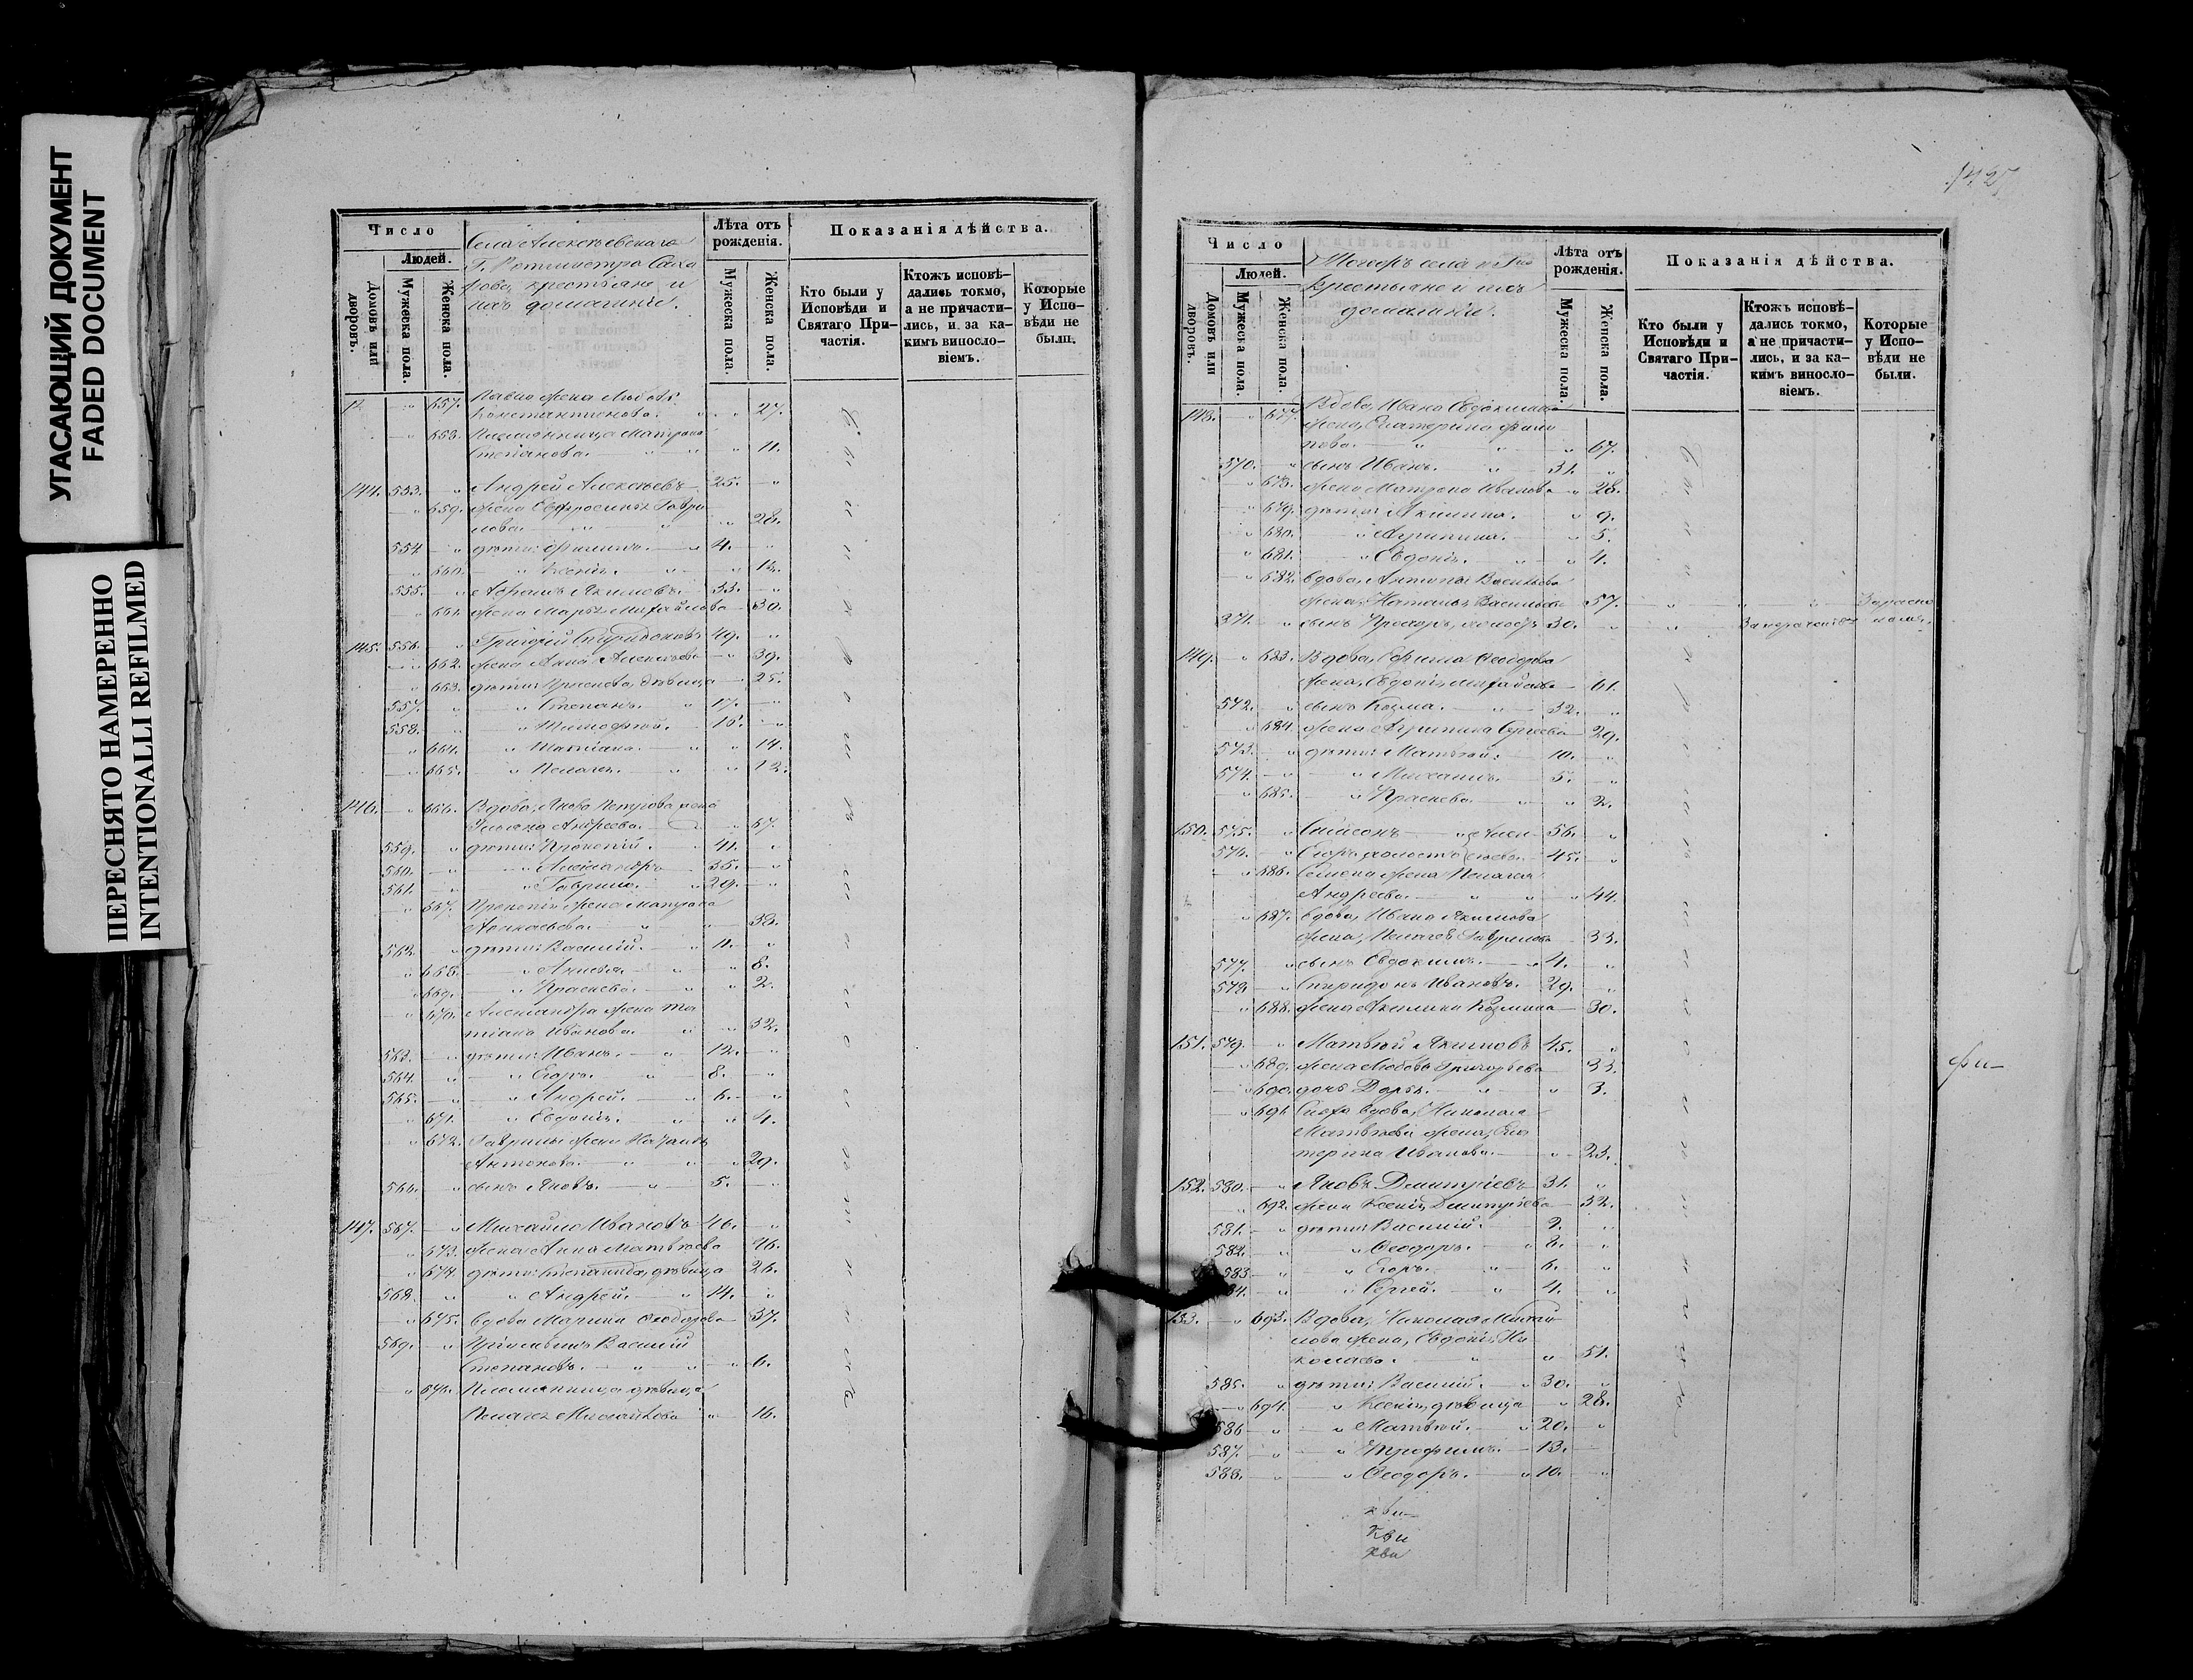 УГАСАЮЩИЙ ДОКУМЕНТ
FADED DOCUMENT
ПЕРЕСНЯТО НАМЕРЕННО
INTENTIONALLI REFILMED
Число
Людей.
Домовъ или дворовъ.
Мужеска пола.
Женска пола.
Села Алексѣевскаго
Г. Ротмистра
крестьяне и
ихъ домашніе.
Лѣта отъ рожденія.
Мужеска пола.
Женска пола.
Показанія дѣйства.
Кто были у Исповѣди и Святаго При-
частія.
Ктожъ исповѣ-
дались токмо,
а не причасти-
лись, и за ка-
кимъ винносло-
віемъ.
Которые
у Испо-
вѣди не
были.
657. Павла жена Любовь
Константинова. 27.
658. Племянница Матрона
Степанова. 11.
144. 553. Андрей Алексѣевъ 25.
659. жена Евфросинія Гаври
лова. 28.
554. дѣти: Филиппъ. 4.
660. Ксенія. 12.
555. Абрамъ Акимовъ. 33.
661. жена Марья Михайлова 30.
145. 556. Григорій Спиридоновъ 49.
662. жена Анна Алексѣева 39.
663. дѣти: Прасковья, дѣвица 25.
557. Степанъ. 17.
558. Тимофѣй. 15.
664. Татіана. 14.
665. Пелагея. 12.
146. 666. Вдова, Якова Петрова жена
Андреева. 67.
559. дѣти: Прокопій. 41.
560. Александръ 35.
561. Гаврило. 29.
667. Прокопія жена Матрона
38.
562. дѣти: Василій. 11.
668. 8.
669. Прасковья. 2.
670. Александра жена Та
тіана Иванова. 32.
563. дѣти: Иванъ. 12.
564. Егоръ. 8.
565. Андрей. 6.
671. Евдокія. 4.
672. Гаврилы жена Наталья
Антонова. 29.
566. сынъ Яковъ. 5.
147. 567. Михайло Ивановъ 46.
673. жена Анна Матвѣева 46.
674. дѣти: Степанида, дѣвица 26.
568. Андрей. 14.
675. вдова Марина Ѳеодорова 37.
569. Василій
Степановъ. 6.
676. Племянница дѣвица
Пелагея 16.
1427
Число
Людей.
Домовъ или дворовъ.
Мужеска пола.
Женска пола.
Тогожъ села
Крестьяне и ихъ
домашніе.
Лѣта отъ рожденія.
Мужеска пола.
Женска пола.
Показанія дѣйства.
Кто были у
Исповѣди и
Святаго При-
частія.
Ктожъ исповѣ-
дались токмо,
а не причасти-
лись, и за ка-
кимъ винносло-
віемъ.
Которые
у Испо-
вѣди не
были.
148. 677. Вдова, Ивана Евдокимова
жена, Екатерина Филип
пова. 67.
570. сынъ Иванъ. 31.
678. жена Матрона Иванова 28.
679. дѣти: Акилина. 9.
680. Агрипина. 5.
681. Евдокія. 4.
682. вдова, Антона Васильева
жена, Наталья Васильева 57.
571. сынъ Прохоръ, холостъ 30.
149. 683. Вдова, Ефима Ѳеодорова
жена, Евдокія Михайлова 61.
572. сынъ Козма. 32.
684. жена Агрипина Сергеева 29.
573. дѣти: Матвѣй. 10.
574. Михаилъ. 5.
685. Прасковья. 2.
150. 575. Симеонъ 56.
576. Егоръ холостъ 45.
686. Семена жена Пелагея
Андреева. 44.
687. вдова, Ивана Якимова
жена, Пелагея Гаврилова 33.
577. сынъ Евдокимъ. 4.
578. Спиридонъ Ивановъ. 29.
688. жена Акилина Козмина 30.
151. 579. Матвѣй Якимовъ 45.
689. жена Любовь Григорьева 33.
690. дочь Дарья. 3.
691. Сноха вдова, Николая
Матвѣева жена, Ека
терина Иванова. 23.
152. 580. Яковъ Димитріевъ 31.
692. жена Ксенія Димитріева 32.
581. дѣти: Василій. 9.
582. Ѳеодоръ. 8.
583. Егоръ. 6.
Сергей. 4.
153. 693. Вдова, Николая
жена, Евдокія Ни
колаева. 51.
585. дѣти: Василій. 30.
694. Ксенія, дѣвица 28.
586. Матвѣй. 20.
587. Трофимъ. 13.
588. Ѳеодоръ. 10.